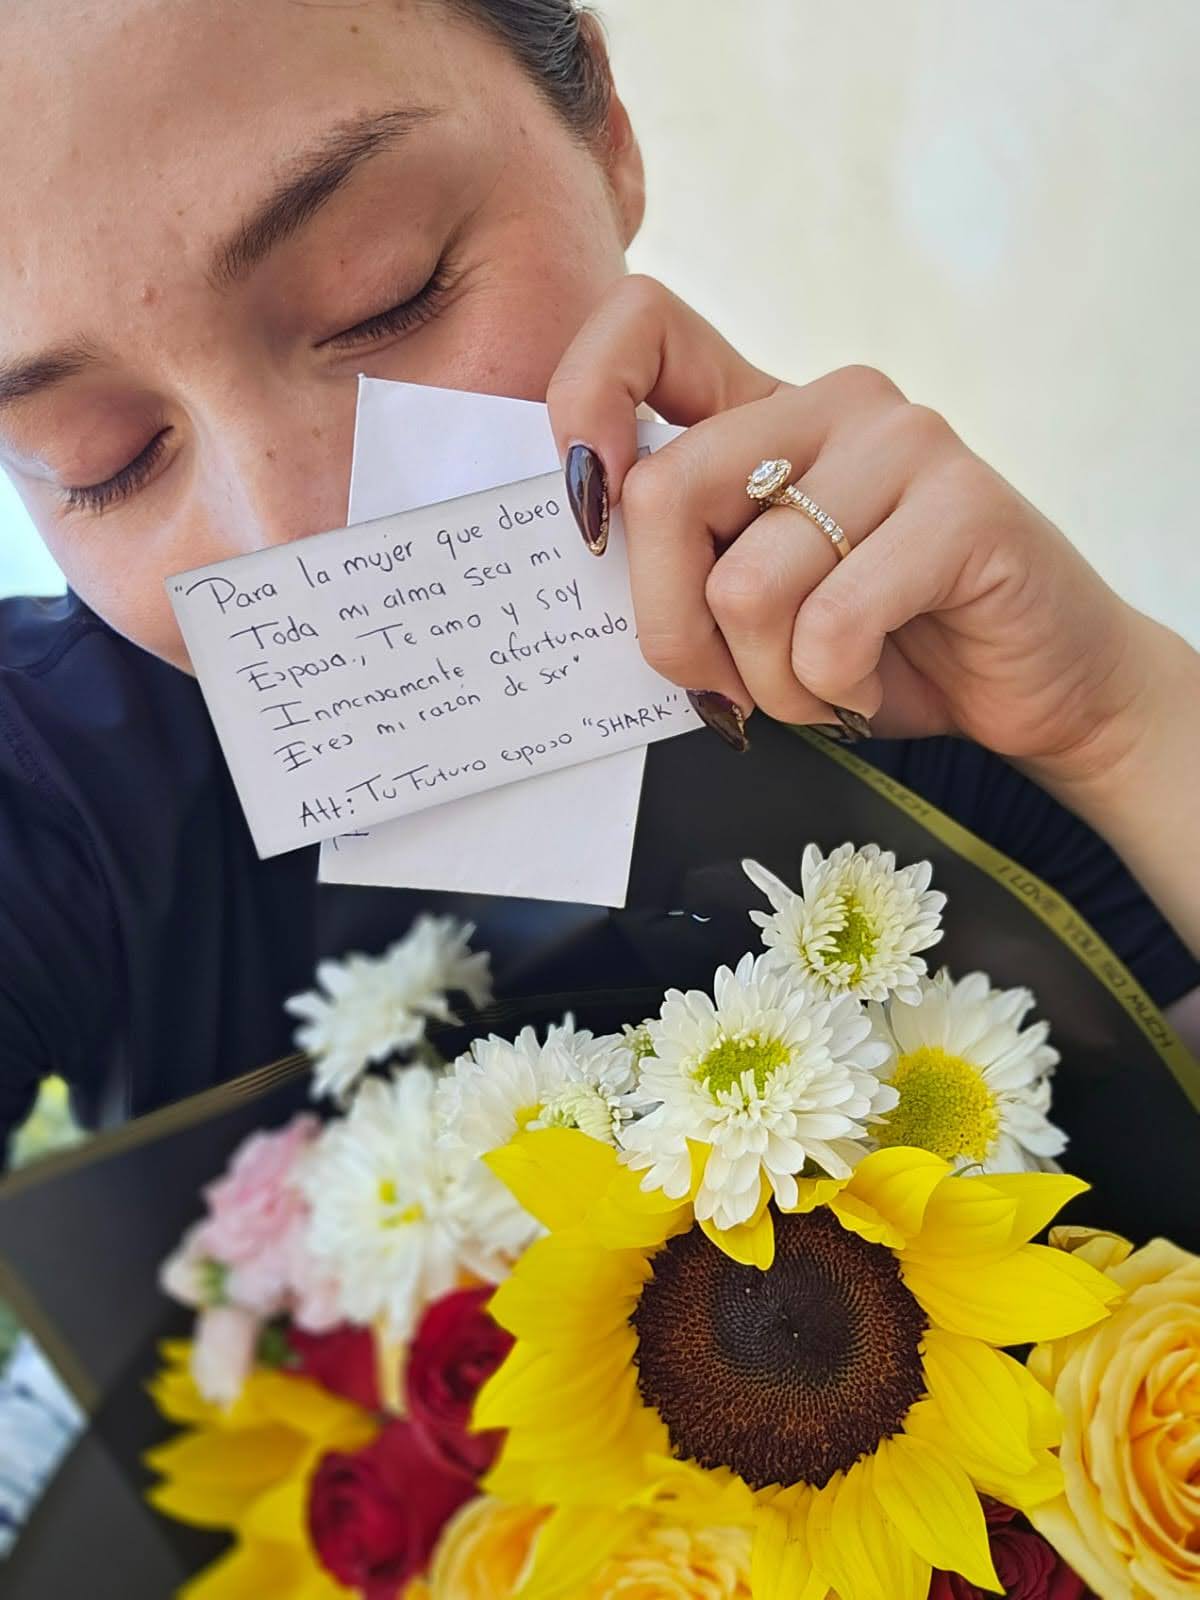 "Para la mujer que deseo
Toda mi alma sea mi
Esposa., Te amo y soy
Inmensamente afortunado,
Eres mi razón de ser"
Att: Tu Futuro esposo "SHARK".
SO MUCH
I LOVE YOU SO MUCH